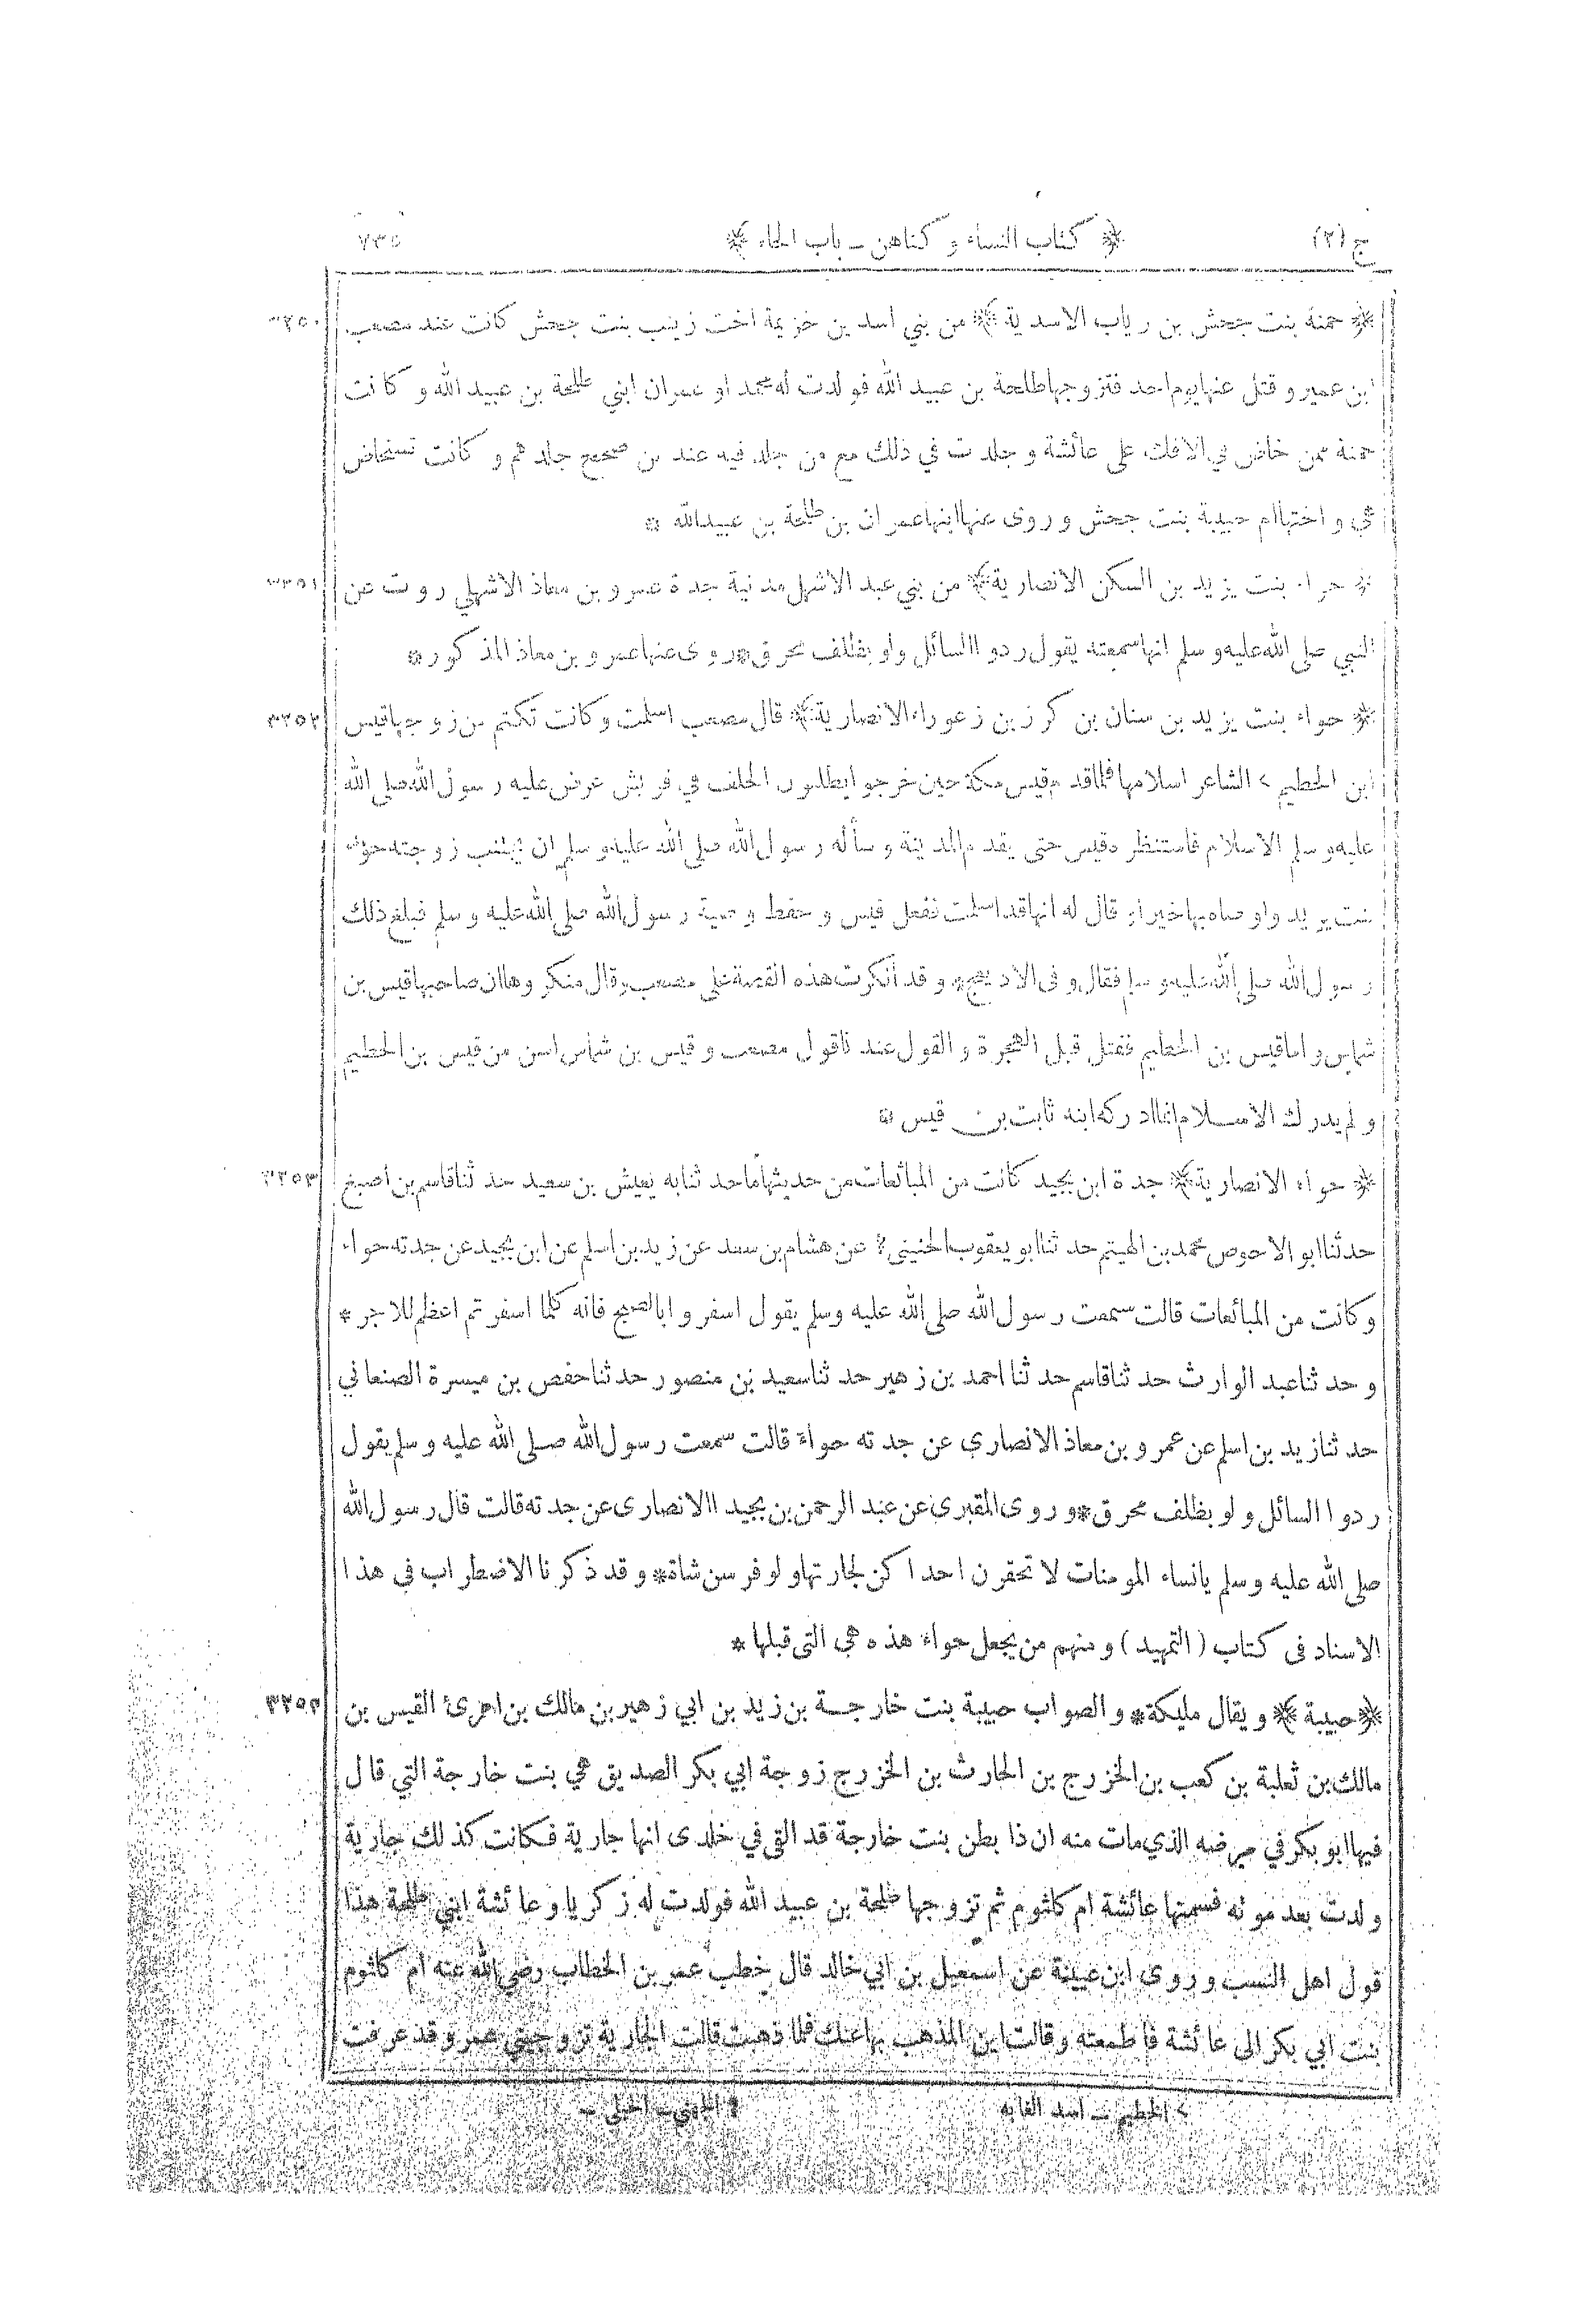 ج (٢) ﴿ كتاب النساء و كناهن ــ باب الحاء ﴾ ٧٣٥
﴿ حمنة بنت جحش بن رياب الاسدية ﴾ من بني اسد بن خزيمة اخت زينب بنت جحش كانت عند مصعب ٣٢٥٠
ابن عمير و قتل عنها يوم احد فتزوجها طلحة بن عبيد الله فولدت له محمدا و عمران ابني طلحة بن عبيد الله و كانت
حمنة ممن خاض في الافك على عائشة و جلدت في ذلك مع من جلد فيه عند من صحح جلدهم و كانت تستحاض
هي و اختها ام حبيبة بنت جحش و روى عنها ابنها عمران بن طلحة بن عبيد الله *
﴿ حواء بنت يزيد بن السكن الانصارية ﴾ من بني عبد الاشهل مدنية جدة عمرو بن معاذ الاشهلي روت عن ٣٢٥١
النبي صلى الله عليه و سلم انها سمعته يقول ردوا السائل ولو بظلف محرق * روى عنها عمرو بن معاذ المذكور *
﴿ حواء بنت يزيد بن سنان بن كرز بن زعوراء الانصارية ﴾ قال مصعب اسلمت و كانت تكتم من زوجها قيس ٣٢٥٢
ابن الخطيم > الشاعر اسلامها فلما قدم قيس مكة حين خرجوا يطلبون الحلف في قريش عرض عليه رسول الله صلى الله
عليه و سلم الاسلام فاستنظره قيس حتى يقدم المدينة و سأله رسول الله صلى الله عليه و سلم ان يجتنب زوجته حواء
بنت يزيد و اوصاه بها خيرا و قال له انها قد اسلمت ففعل قيس و حفظ وصية رسول الله صلى الله عليه و سلم فبلغ ذلك
رسول الله صلى الله عليه و سلم فقال و في الاديعج * و قد انكرت هذه القصة على مصعب و قال منكروها ان صاحبها قيس بن
شماس و اما قيس بن الخطيم فقتل قبل الهجرة و القول عندنا قول مصعب و قيس بن شماس اسن من قيس بن الخطيم
و لم يدرك الاسلام انما ادركه ابنه ثابت بن قيس *
﴿ حواء الانصارية ﴾ جدة ابن بجيد كانت من المبائعات من حديثها ما حدثنا به يعيش بن سعيد حدثنا قاسم بن اصبغ ٣٢٥٣
حدثنا ابو الاحوص محمد بن الهيتم حدثنا ابو يعقوب الحنيني ؟ عن هشام بن سعد عن زيد بن اسلم عن ابن بجيد عن جدته حواء
و كانت من المبائعات قالت سمعت رسول الله صلى الله عليه وسلم يقول اسفروا بالصبح فانه كلما اسفرتم اعظم للاجر *
و حدثنا عبد الوارث حدثنا قاسم حدثنا احمد بن زهير حدثنا سعيد بن منصور حدثنا حفص بن ميسرة الصنعاني
حدثنا زيد بن اسلم عن عمرو بن معاذ الانصاري عن جدته حواء قالت سمعت رسول الله صلى الله عليه و سلم يقول
ردوا السائل و لو بظلف محرق * و روى المقبري عن عبد الرحمن بن بجيد االانصارى عن جدته قالت قال رسول الله
صلى الله عليه وسلم يانساء المومنات لا تحقرن احداكن لجارتها و لو فرسن شاة * و قد ذكرنا الاضطراب في هذا
الاسناد فى كتاب (التمهيد) و منهم من يجعل حواء هذه هي التى قبلها *
﴿ حبيبة ﴾ و يقال مليكة * و الصواب حبيبة بنت خارجة بن زيد بن ابي زهير بن مالك بن امرئ القيس بن ٣٢٥٤
مالك بن ثعلبة بن كعب بن الخزرج بن الحارث بن الخزرج زوجة ابي بكر الصديق هي بنت خارجة التي قال
فيها ابو بكر في مرضه الذي مات منه ان ذا بطن بنت خارجة قد القى في خلدى انها جارية فكانت كذلك جارية
ولدت بعد موته فسمتها عائشة ام كلثوم ثم تزوجها طلحة بن عبيد الله فولدت له زكريا و عائشة ابني طلحة هذا
قول اهل النسب و روى ابن عيينة عن اسمعيل بن ابي خالد قال خطب عمر بن الخطاب رضي الله عنه ام كلثوم
بنت ابي بكر الى عائشة فاطمعته وقالت اين المذهب بها عنك فلما ذهبت قالت الجارية تزوجيني عمر و قد عرفت
> الخطيم ــ اسد الغابه